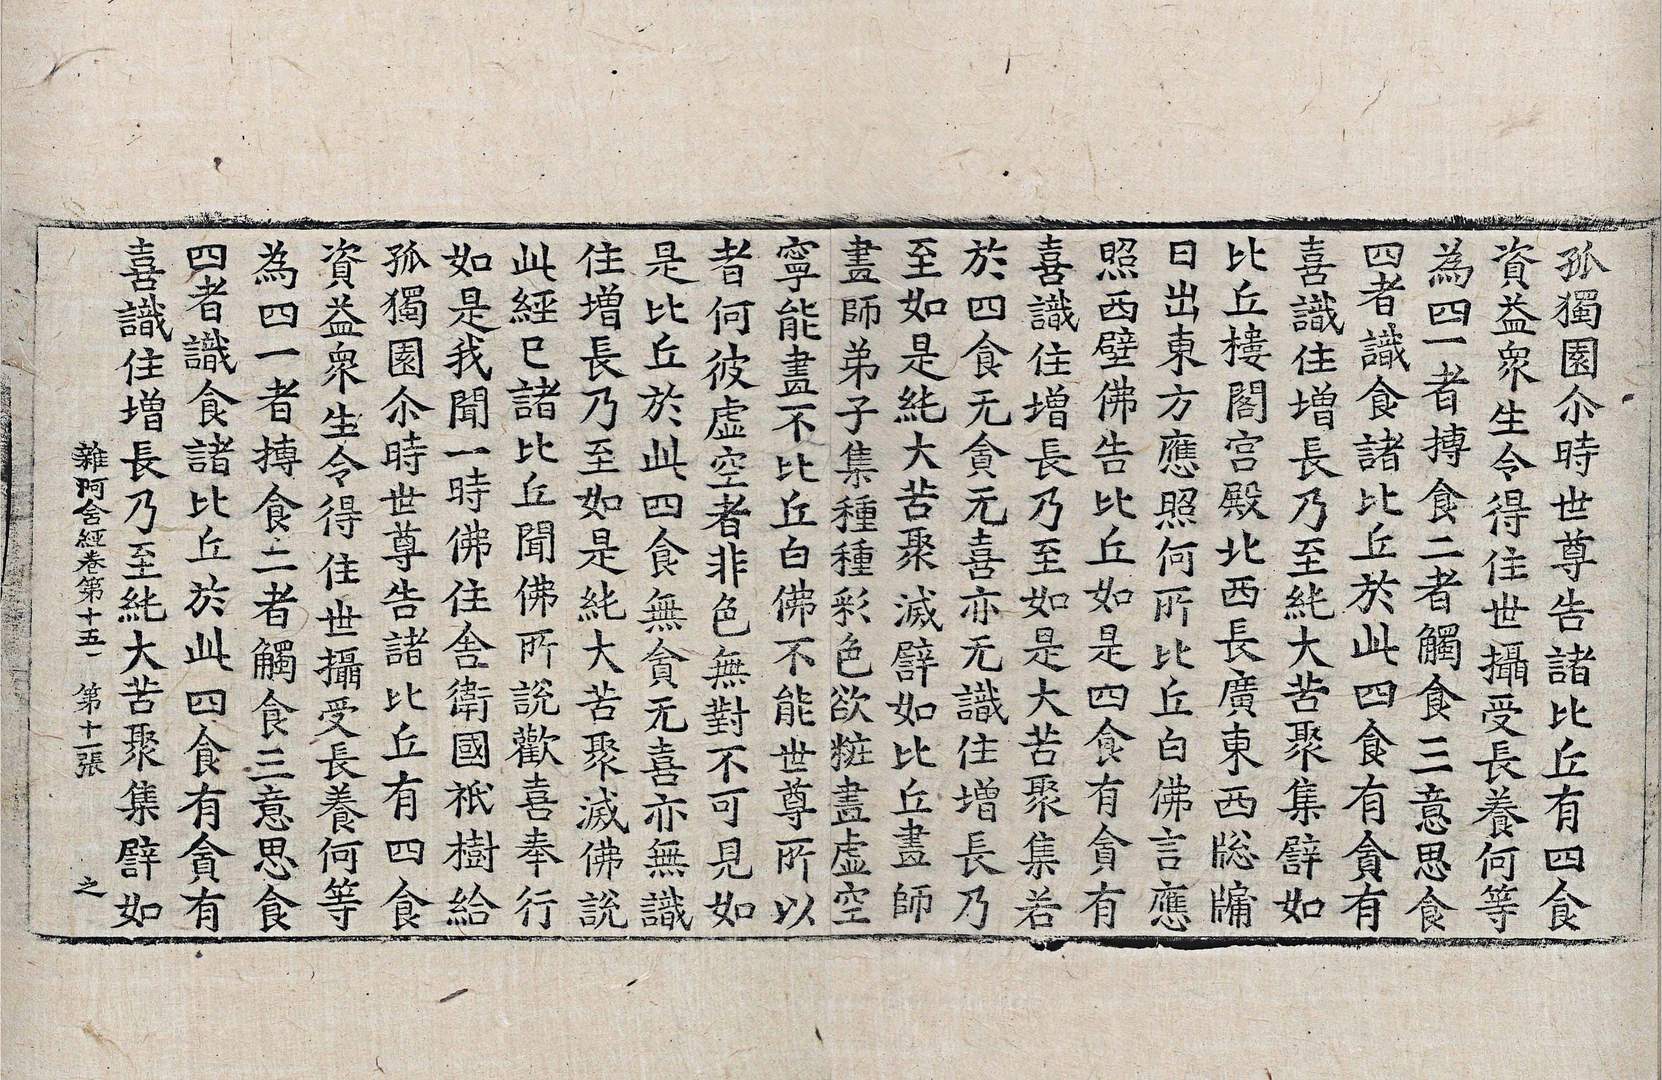 孤獨園尒時世尊告諸比丘有四食
資益衆生令得住世攝受長養何等
為四一者摶食二者觸食三意思食
四者識食諸比丘於此四食有貪有
喜識住增長乃至純大苦聚集譬如
比丘樓閣宮殿北西長廣東西牕牖
日出東方應照何所比丘白佛言應
照西壁佛告比丘如是四食有貪有
喜識住增長乃至如是大苦聚集若
於四食无貪无喜亦无識住增長乃
至如是純大苦聚滅譬如比丘畫師
畫師弟子集種種彩色欲粧畫虛空
寧能畫不比丘白佛不能世尊所以
者何彼虛空者非色無對不可見如
是比丘於此四食無貪无喜亦無識
住增長乃至如是純大苦聚滅佛說
此經已諸比丘聞佛所說歡喜奉行
如是我聞一時佛住舍衛國祇樹給
孤獨園尒時世尊告諸比丘有四食
資益衆生令得住世攝受長養何等
為四一者摶食二者觸食三意思食
四者識食諸比丘於此四食有貪有
喜識住增長乃至純大苦聚集譬如
雜阿含經卷第十五 第十一張 之